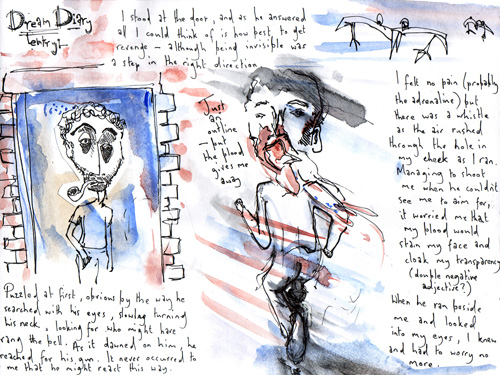 Dream Diary
(entry)-
I stood at the door, and as he answered
all I could think of is how best to get
revenge - although being invisible was
a step in the right direction.
Just
an
outline
- but
the blood
gives me
away
I felt no pain (probably
the adrenaline) but
there was a whistle
as the air rushed
through the hole in
my cheek as I ran.
Managing to shoot
me when he couldn't
see me to aim for,
it worried me that
my blood would
stain my face and
cloak my transparency
(double negative
adjective?)
When he ran beside
me and looked
into my eyes, I knew
and had to worry no
more.
Puzzled at first, obvious by the way he
searched with his eyes, slowly turning
his neck, looking for who might have
rang the bell. As it dawned on him, he
reached for his gun. It never occurred to
me that he might react this way.